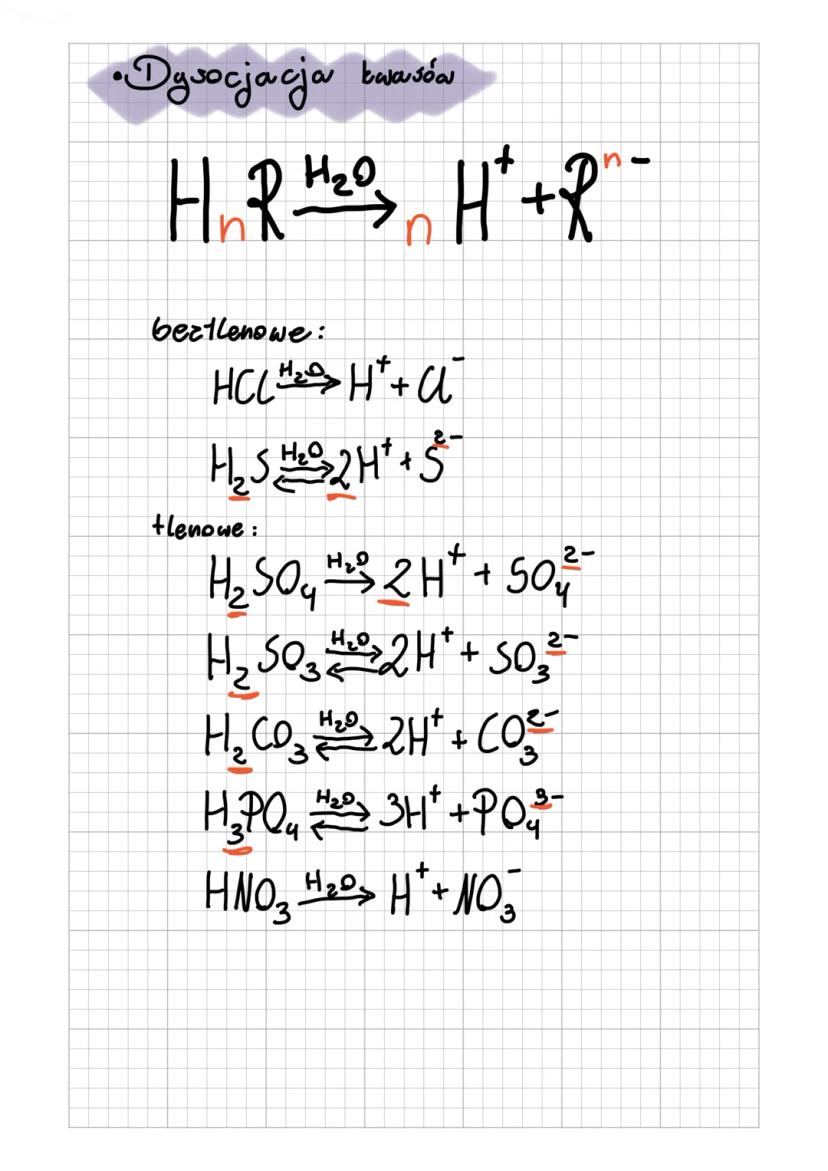 • Dysocjacja kwasów
HₙR —H₂O→ n H⁺ + Rⁿ⁻
beztlenowe:
HCl —H₂O→ H⁺ + Cl⁻
H₂S ⇄ (H₂O) 2H⁺ + S²⁻
tlenowe:
H₂SO₄ —H₂O→ 2H⁺ + SO₄²⁻
H₂SO₃ ⇄ (H₂O) 2H⁺ + SO₃²⁻
H₂CO₃ ⇄ (H₂O) 2H⁺ + CO₃²⁻
H₃PO₄ ⇄ (H₂O) 3H⁺ + PO₄³⁻
HNO₃ —H₂O→ H⁺ + NO₃⁻